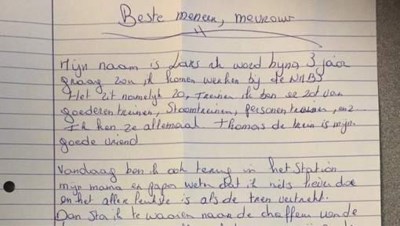 Beste meneer, mevrouw
Mijn naam is Lars ik word bijna 3 jaar
graag zou ik komen werken bij de NMBS
Het zit namelijk zo, treinen ik ben er zot van
goederentreinen, Stoomtreinen, personentreinen, enz...
Ik ken ze allemaal Thomas de trein is mijn
goede vriend.
Vandaag ben ik ook terug in het Station
mijn mama en papa weten dat ik niets liever doe
en het aller leukste is als de trein vertrekt.
Dan Sta ik te waaien naar de chauffeur van de